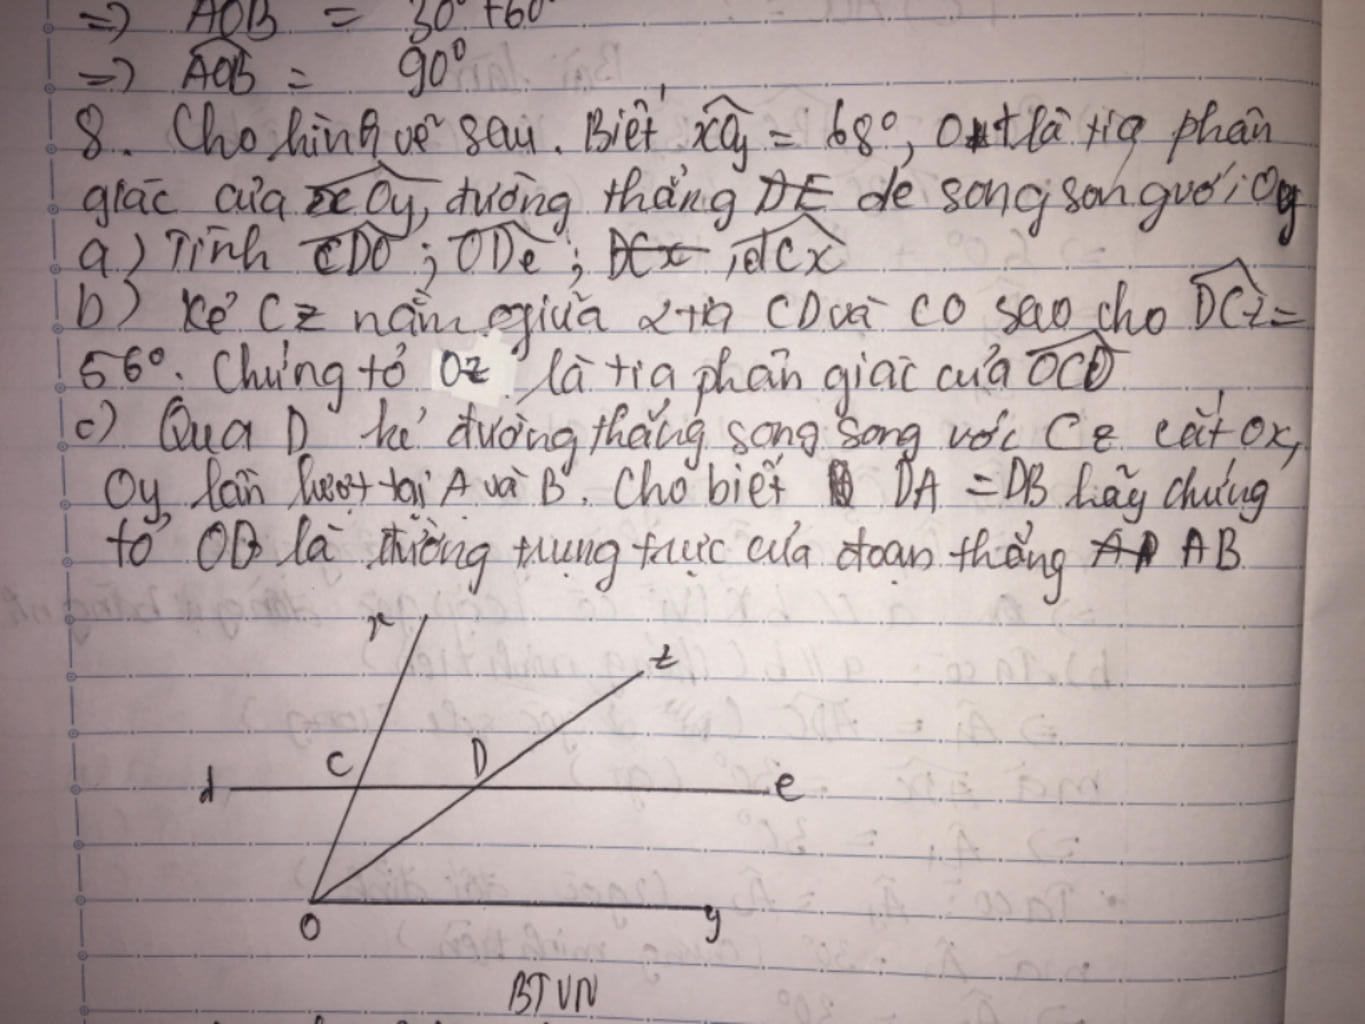 => AOB = 30° + 60°
=> AOB = 90°
8. Cho hình vẽ sau. Biết xOy = 68°, Ot là tia phân
giác của xOy, đường thẳng DE de song song với Oy
a) Tính CDO ; ODe ; DCx , dCx
b) Kẻ Cz nằm giữa 2 tia CD và CO sao cho DCz =
56°. Chứng tỏ Oz là tia phân giác của OCD
c) Qua D kẻ đường thẳng song song với Cz cắt Ox,
Oy lần lượt tại A và B. Cho biết DA = DB hãy chứng
tỏ OD là đường trung trực của đoạn thẳng AB
x
t
C D
d e
O y
BTVN